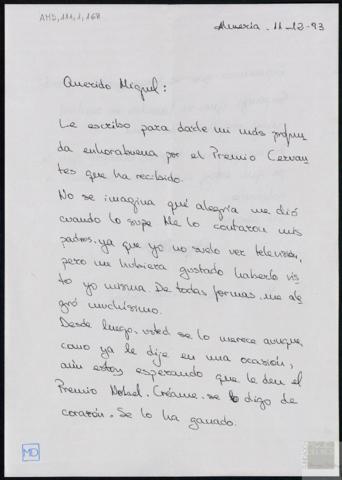 AMD, 111, 1, 168
Almería, 11-12-93
Querido Miguel:
Le escribo para darle mi más profun
da enhorabuena por el Premio Cervan
tes que ha recibido.
No se imagina qué alegría me dió
cuando lo supe. Me lo contaron mis
padres, ya que yo no suelo ver televisión,
pero me hubiera gustado haberlo vis
to yo misma. De todas formas, me ale
gró muchísimo.
Desde luego, usted se lo merece aunque,
como ya le dije en una ocasión,
aún estoy esperando que le den el
Premio Nobel. Créame, se lo digo de
corazón. Se lo ha ganado.
MD